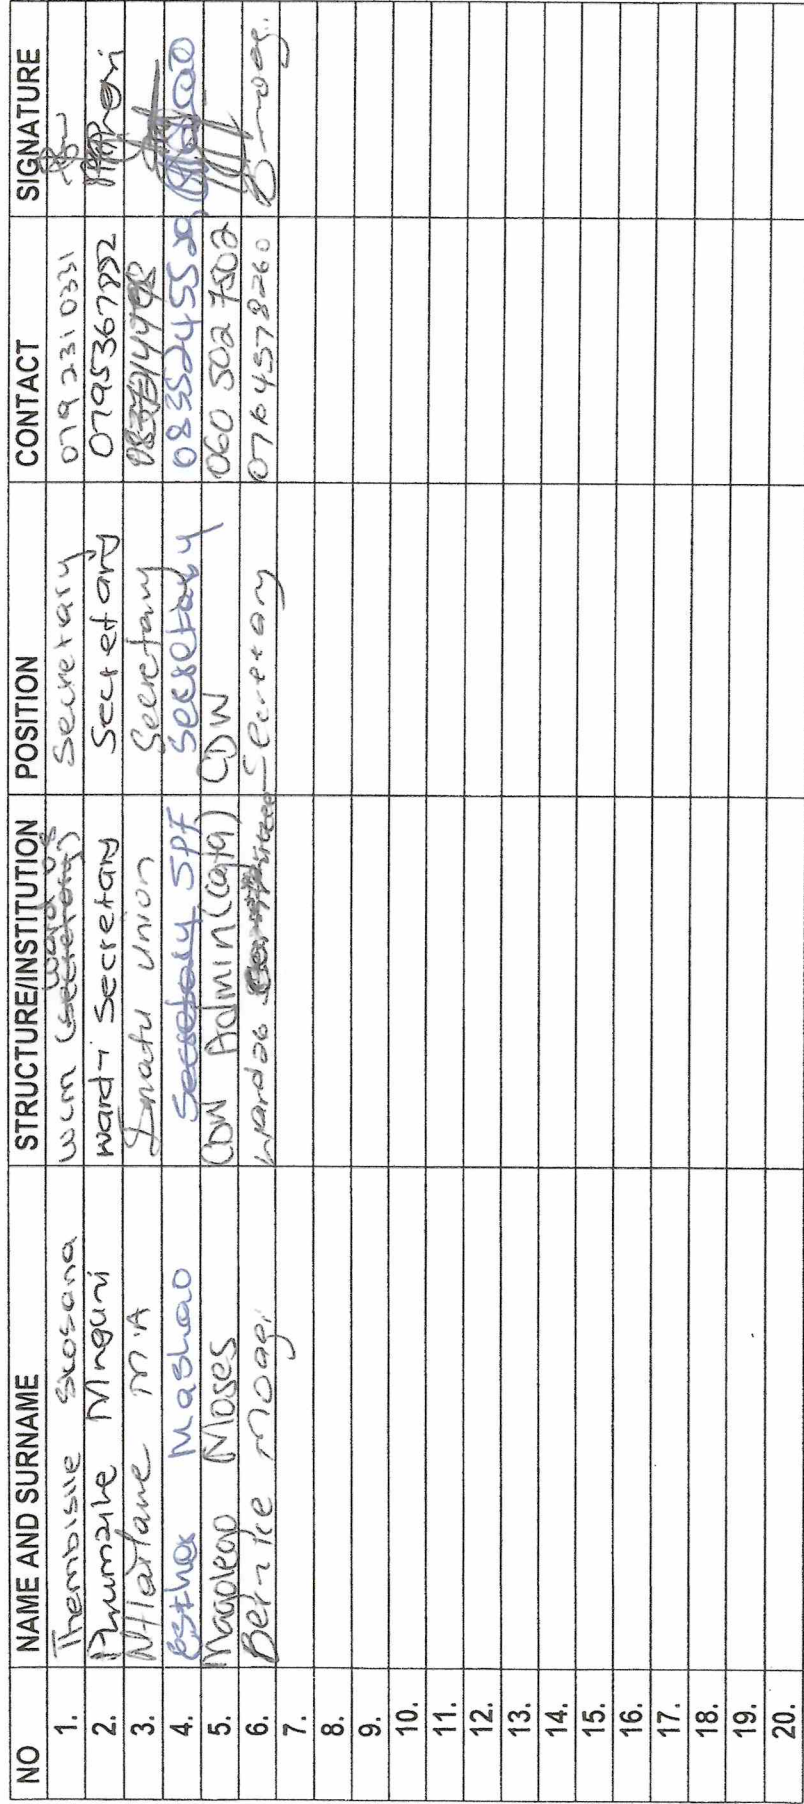 NO NAME AND SURNAME STRUCTURE/INSTITUTION POSITION CONTACT SIGNATURE
1. Thembisile Skosana WCM (secretary) ward Secretary 079 231 0331
2. Mnguni ward-1 Secretary Secretary 0795367852
3. M.A union Secretary
4. Esther Mashao Secretary SPF Secretary 0835245529
5. Moses CDW Admin (cogta) CDW 060 502 7502
6. Bernice Moagi ward 26 Secretary 0764578260 B Moagi
7.
8.
9.
10.
11.
12.
13.
14.
15.
16.
17.
18.
19.
20.